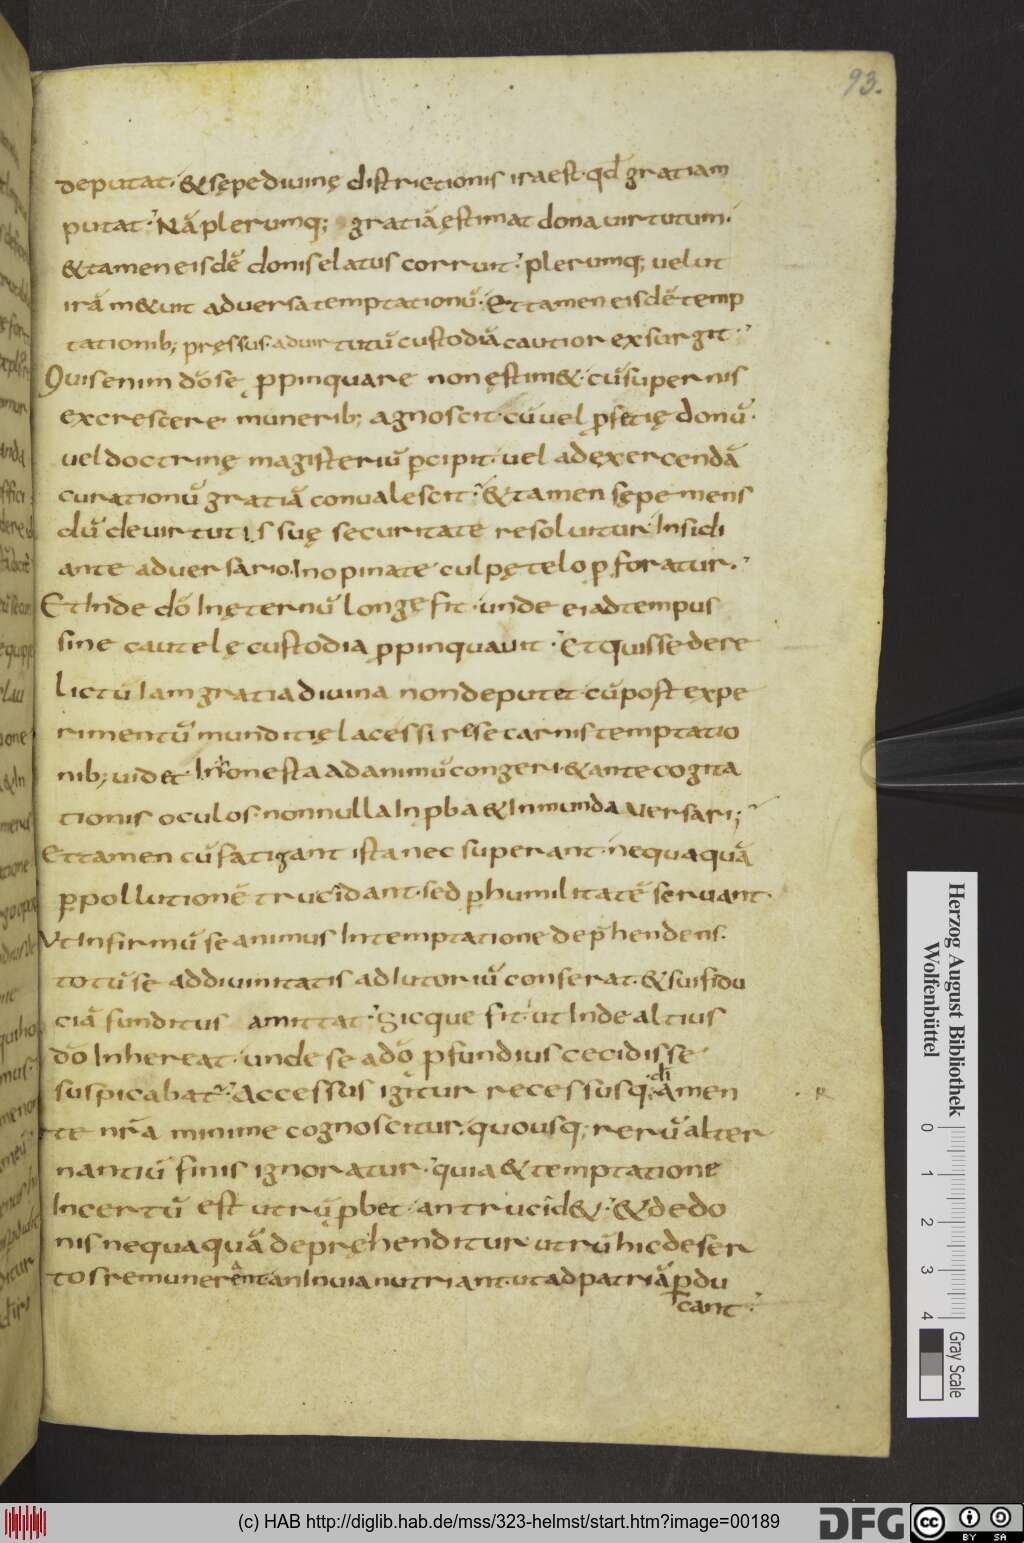 93.
deputat. & sępe divinę districtionis ira est. qd̄ gratiam
putat. Nā plerumq; gratiā ęstimat dona uirtutum.
& tamen eisdē donis elatus corruit. plerumq; uelut
irā m&uit aduersa temptationū. Et tamen eisdē temp
tationib; pręssus. ad uirtutū custodiā cautior exsurgit.
Quis enim dō se ꝓpinquare non ęstim&. cū supernis
excrescere munerib; agnoscit. cū uel ꝓfetię donū.
uel doctrinę magisteriū p̄cipit. uel ad exercendā
curationū gratiā conualescit. & tamen sępe mens
dū de uirtutis suę securitate resoluitur. Insidi
ante aduersario. Inopinate culpę telo ꝑforatur.
Et Inde dō In ęternū longe fit. unde ei ad tempus
sine cautelę custodia ꝓpinquauit. Et quis se dere
lictū Iam gratia diuina non deputet. cū post expe
rimentū munditię lacessiri se carnis temptatio
nib; uidet. Inhonesta ad animū congeri. & ante cogita
tionis oculos. nonnulla Inꝓba & Inmunda uersari;
Et tamen cū fatigant ista nec superant. nequaquā
ꝑ pollutionē trucidant. sed ꝑ humilitatē seruant.
Vt Infirmū se animus In temptatione dep̄hendens.
totū se ad diuinitatis adIutoriū conferat. & sui fidu
ciā funditus amittat. Sicque fit. ut Inde altius
dō Inhereat. unde se a dō ꝓfundius cecidisse
suspicabat᷑. Accessus igitur recessusq; dī a men
te nr̄a minime cognoscitur. quousq; rerū alter
nantiū finis ignoratur. quia & temptatione
Incertū est utrū ꝓbet. an trucid&. & de do
nis nequaquā depręhenditur. utrū hic deser
tos remunerent. an In uia nutriant. ut ad patriā ꝑdu
cant.
R
Herzog August Bibliothek
Wolfenbüttel
0 1 2 3 4
Gray Scale
(c) HAB http://diglib.hab.de/mss/323-helmst/start.htm?image=00189
DFG
cc BY SA